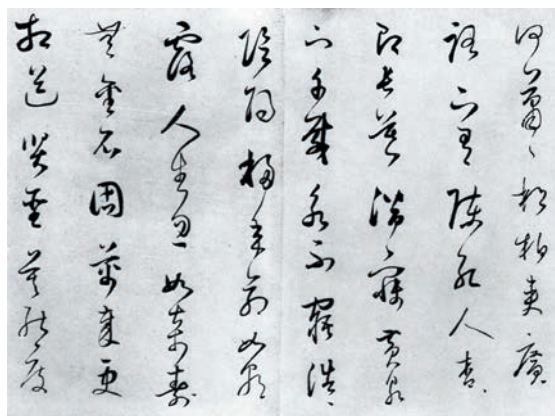 何蕭〻松柏夾廣
路下有陳死人杳〻
即長暮潛寐黃泉
下千載永不寤浩〻
陰陽移年命如朝
露人生忽如寄壽
無金石固萬歲更
相送賢聖莫能度